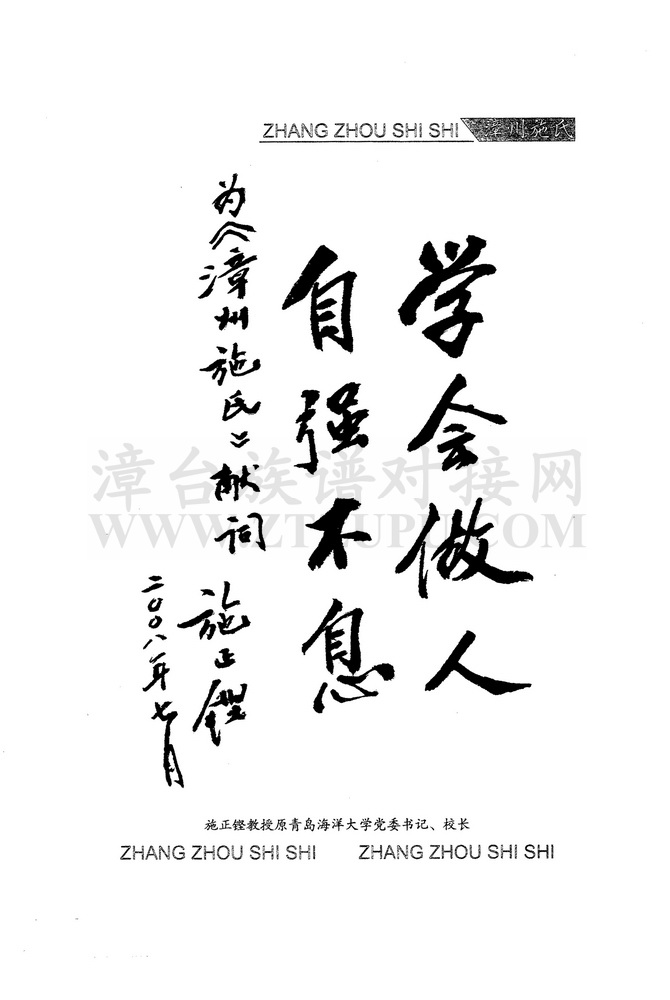 ZHANG ZHOU SHI SHI 漳州施氏
学会做人
自强不息
为《漳州施氏》献词
施正鏗
二〇〇八年七月
漳台族谱对接网
WWW.ZTZUPU.COM
施正铿教授原青岛海洋大学党委书记、校长
ZHANG ZHOU SHI SHI ZHANG ZHOU SHI SHI